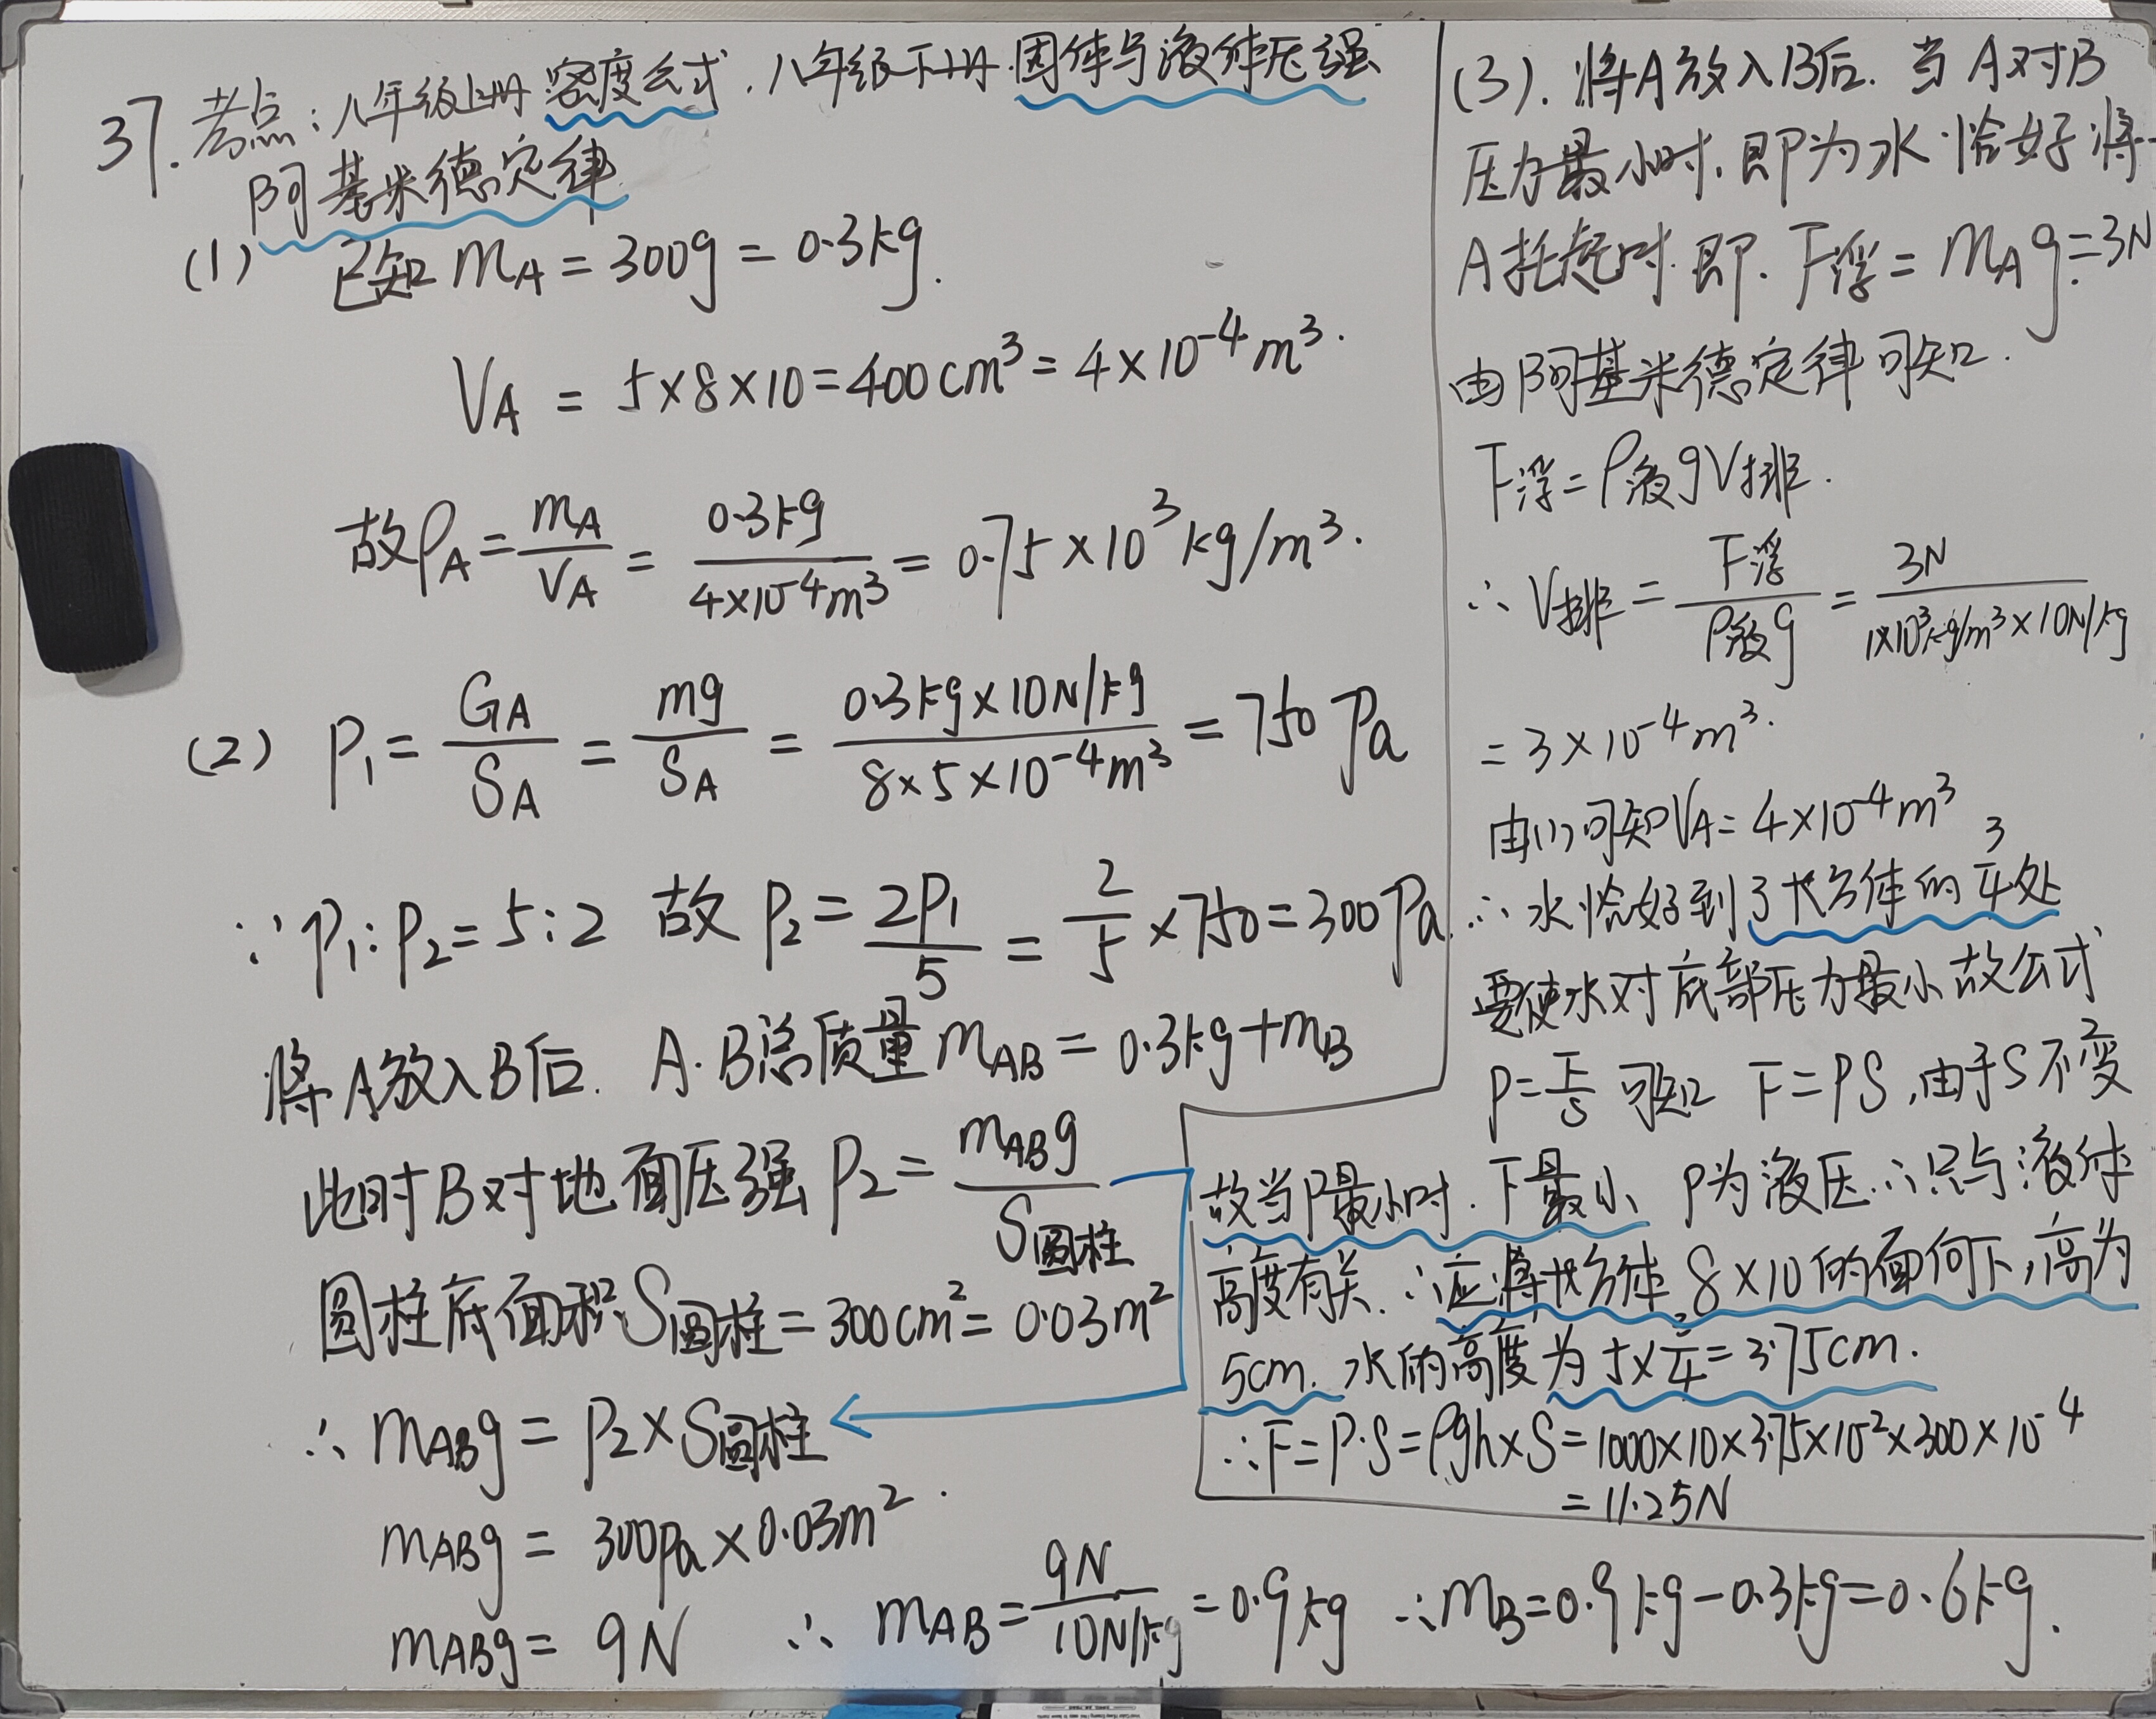 37. 考点: 八年级上册 密度公式, 八年级下册 固体与液体压强
阿基米德定律
(1) 已知 mA = 300g = 0.3kg.
VA = 5×8×10 = 400cm³ = 4×10⁻⁴m³.
故ρA = mA/VA = 0.3kg/4×10⁻⁴m³ = 0.75×10³kg/m³.
(2) P₁ = GA/SA = mg/SA = 0.3kg×10N/kg/8×5×10⁻⁴m² = 750Pa
∵P₁:P₂=5:2 故 P₂ = 2P₁/5 = 2/5×750=300Pa
将A放入B后. A.B总质量mAB = 0.3kg+mB
此时B对地面压强 P₂ = mABg/S圆柱
圆柱底面积S圆柱 = 300cm² = 0.03m²
∴ mABg = P₂×S圆柱
mABg = 300Pa×0.03m².
mABg = 9N ∴ mAB = 9N/10N/kg = 0.9kg ∴mB=0.9kg-0.3kg=0.6kg.
(3). 将A放入B后. 当A对B
压力最小时, 即为水恰好将
A托起时. 即. F浮 = mAg=3N.
由阿基米德定律可知.
F浮=ρ液gV排.
∴ V排 = F浮/ρ液g = 3N/1×10³kg/m³×10N/kg
= 3×10⁻⁴m³.
由(1)可知VA=4×10⁻⁴m³
∴ 水恰好到了长方体的3/4处
要使水对底部压力最小故公式
P=F/S 可知 F=PS, 由于S不变
故当P最小时. F最小 P为液压∴只与液体
高度有关. ∴应将长方体 8×10的面向下, 高为
5cm. 水的高度为 5×3/4=3.75cm.
∴F=P·S=ρgh×S=1000×10×3.75×10⁻²×300×10⁻⁴
= 11.25N